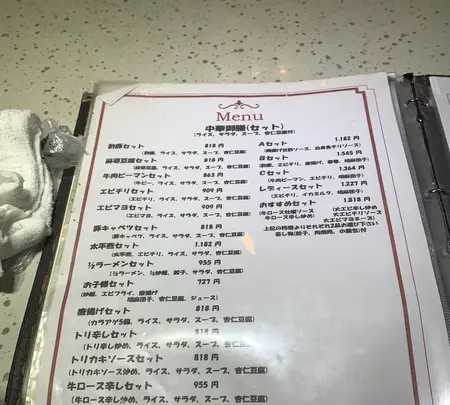 Menu
中華御膳(セット)
(ライス、サラダ、スープ、杏仁豆腐付)
酢豚セット 818 円
(酢豚、ライス、サラダ、スープ、杏仁豆腐)
麻婆豆腐セット 818 円
(麻婆豆腐、ライス、サラダ、スープ、杏仁豆腐)
牛肉ピーマンセット 863 円
(牛ピー、ライス、サラダ、スープ、杏仁豆腐)
エビチリセット 909 円
(エビチリ、ライス、サラダ、スープ、杏仁豆腐)
エビマヨセット 909 円
(エビマヨ、ライス、サラダ、スープ、杏仁豆腐)
豚キャベツセット 818 円
(豚キャベツ、ライス、サラダ、スープ、杏仁豆腐)
太平燕セット 1.182 円
(太平燕、エビチリ、ライス、サラダ、杏仁豆腐)
½ラーメンセット 955 円
(½ラーメン、½炒飯、餃子、サラダ、杏仁豆腐)
お子様セット 727 円
(炒飯、エビフライ、唐揚げ
胡麻団子、杏仁豆腐、ジュース)
唐揚げセット 818 円
(カラアゲ5個、ライス、サラダ、スープ、杏仁豆腐)
トリ辛しセット 818 円
(トリ辛し炒め、ライス、サラダ、スープ、杏仁豆腐)
トリカキソースセット 818 円
(トリカキソース炒め、ライス、サラダ、スープ、杏仁豆腐)
牛ロース辛しセット 955 円
(牛ロース辛し炒め、ライス、サラダ、スープ、杏仁豆腐)
Aセット 1.182 円
Bセット 1.545 円
Cセット 1.364 円
(牛肉ピーマン、エビチリ、胡麻団子)
レディースセット 1.227 円
(エビチリ、イカミルク、胡麻団子)
おすすめセット 1.818 円
(牛ロース牡蠣ソース
牛ロース辛し炒め)
(大エビ辛し炒め
大エビチリソース
大エビマヨネーズ)
上記の料理よりそれぞれ2品お選び下さい
蒸し物(餃子、肉焼売、小籠包)付